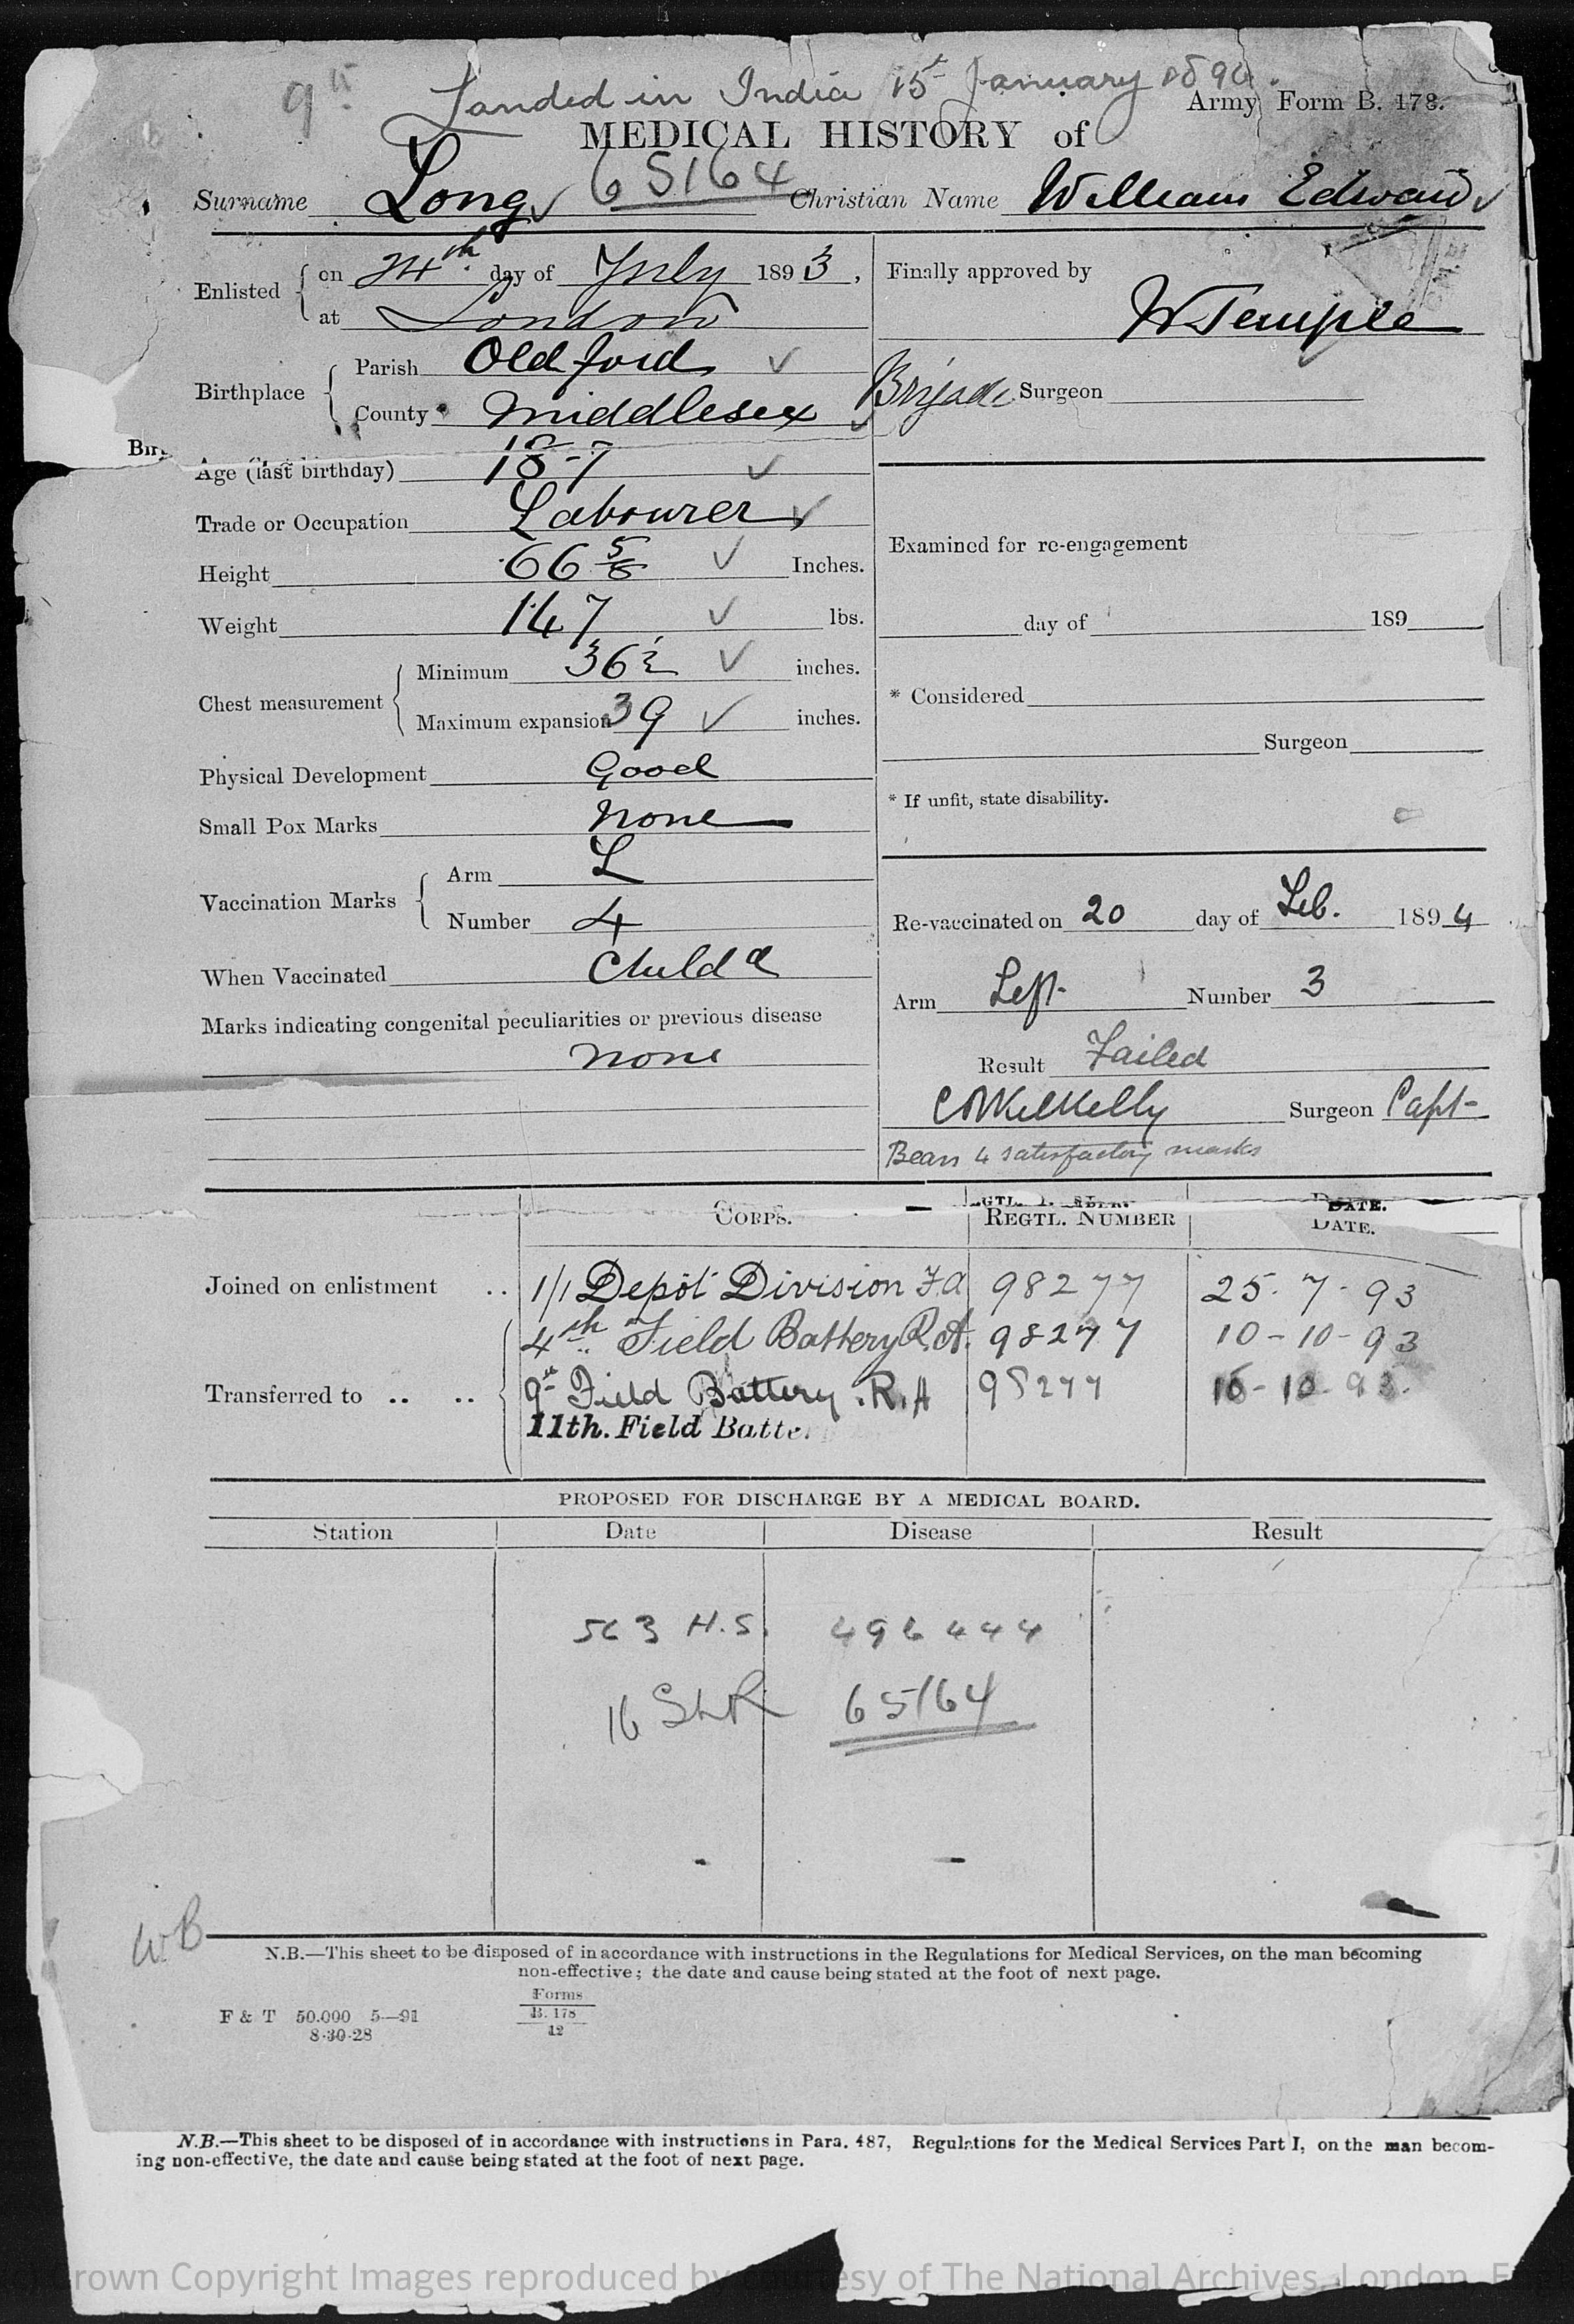 9th Landed in India 15th January 1894.
Army Form B. 178.
MEDICAL HISTORY of
Surname Long 65164 Christian Name William Edward
Enlisted on 24th day of July 1893,
at London
Finally approved by
W Temple
Brigade Surgeon
Birthplace Parish Old ford
County Middlesex
Age (last birthday) 18-7
Trade or Occupation Labourer
Height 66 5/8 Inches.
Weight 147 lbs.
Chest measurement Minimum 36½ inches.
Maximum expansion 39 inches.
Physical Development Good
Small Pox Marks None
Vaccination Marks Arm L
Number 4
When Vaccinated Child d
Marks indicating congenital peculiarities or previous disease
none
Examined for re-engagement
day of 189
* Considered
Surgeon
* If unfit, state disability.
Re-vaccinated on 20 day of Feb. 1894
Arm Left Number 3
Result Failed
Surgeon Capt
Bears 4 satisfactory marks
CORPS. REGTL. NUMBER DATE.
DATE.
Joined on enlistment .. 1/1 Depôt Division F.A 98277 25.7.93
4th Field Battery R.A. 98277 10-10-93
Transferred to .. .. 9th Field Battery. R.A 98277 16-10-93.
11th. Field Batte
PROPOSED FOR DISCHARGE BY A MEDICAL BOARD.
Station Date Disease Result
563 H.S. 496444
16 65164
WB
N.B.—This sheet to be disposed of in accordance with instructions in the Regulations for Medical Services, on the man becoming
non-effective; the date and cause being stated at the foot of next page.
F & T 50.000 5—91
8·30·28
Forms
B. 178
12
N.B.—This sheet to be disposed of in accordance with instructions in Para. 487, Regulations for the Medical Services Part I, on the man becom-
ing non-effective, the date and cause being stated at the foot of next page.
Crown Copyright Images reproduced by courtesy of The National Archives, London,